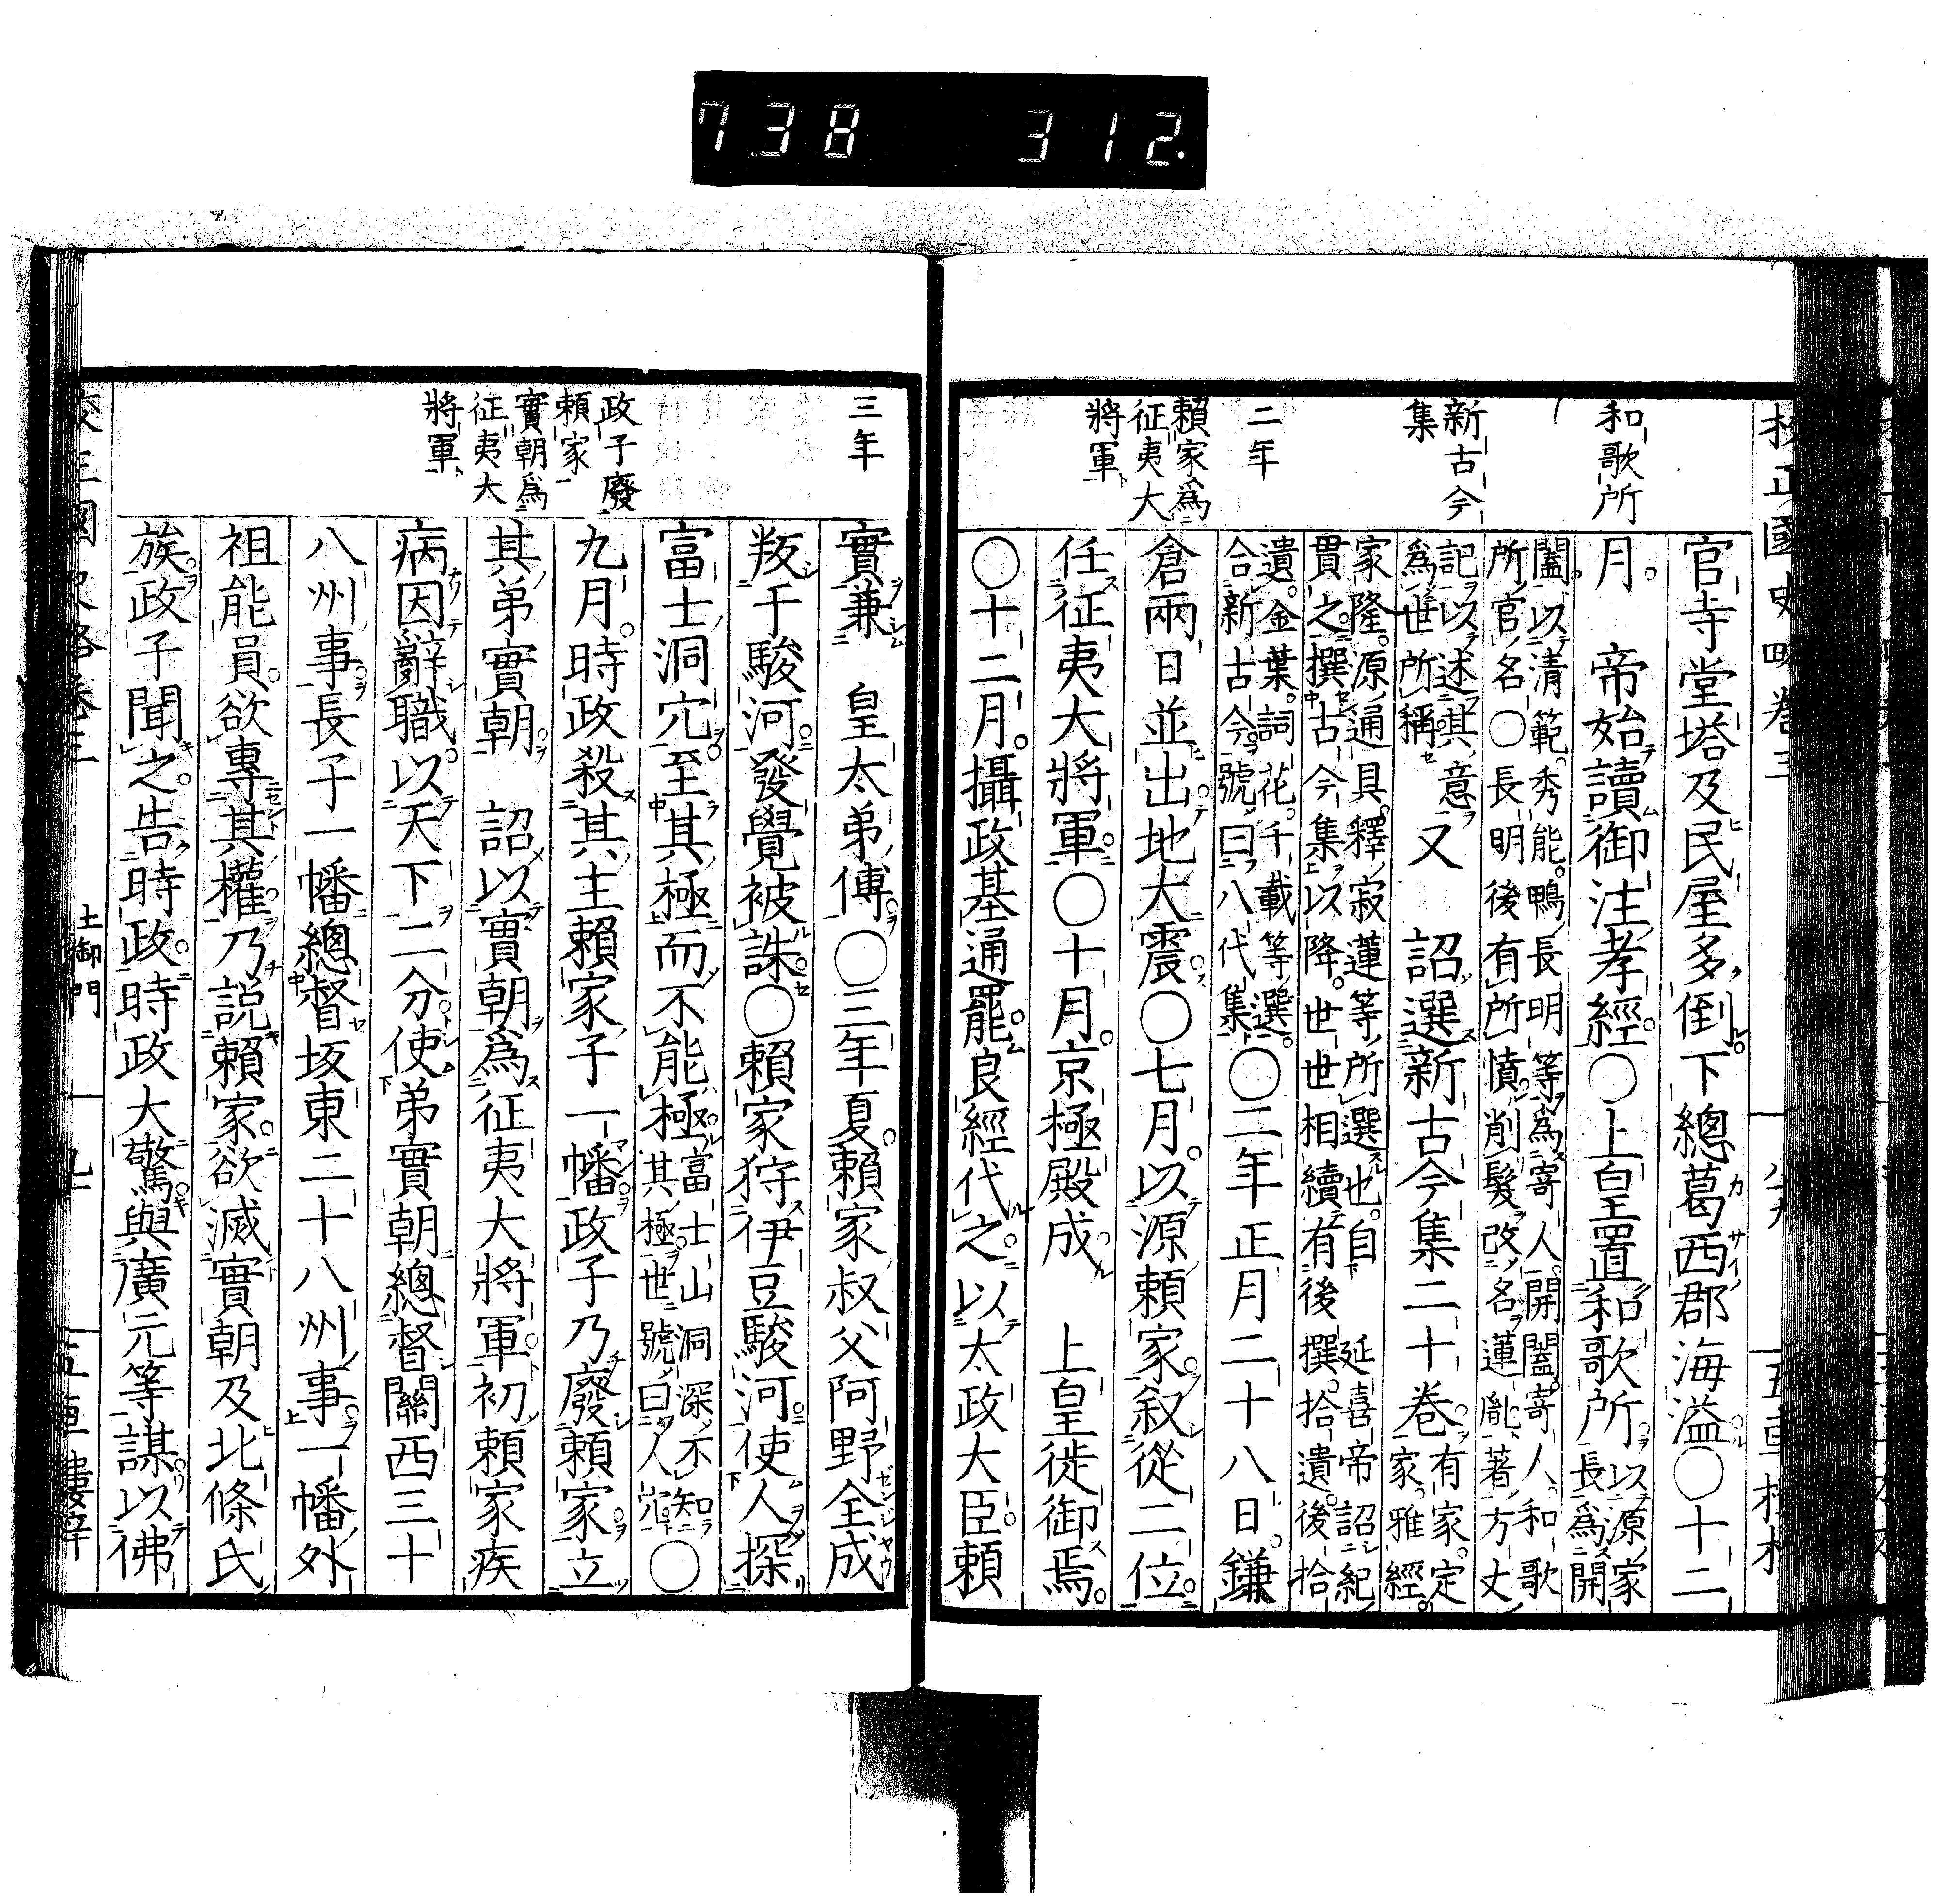 738 312
和歌所
新古今
集
二年
賴家爲
征夷大
將軍
官寺堂塔及民屋多倒下總葛西郡海溢〇十二
月 帝始讀御注孝經〇上皇置和歌所以源家
長爲開
闔以清範秀能鴨長明等爲寄人開闔寄人和歌
所官名〇長明後有所憤削髮改名蓮胤著方丈
記以述其意
爲世所稱又 詔選新古今集二十卷有家定
家雅經
家隆源通具釋寂蓮等所選也自延喜帝詔紀
貫之撰古今集以降世世相續有後撰拾遺後拾
遺金葉詞花千載等選
合新古今號曰八代集〇二年正月二十八日鎌
倉兩日並出地大震〇七月以源賴家叙從二位
任征夷大將軍〇十月京極殿成 上皇徙御焉
〇十二月攝政基通罷良經代之以太政大臣賴
三年
政子廢
賴家
實朝爲
征夷大
將軍
實兼 皇太弟傅〇三年夏賴家叔父阿野全成
叛于駿河發覺被誅〇賴家狩伊豆駿河使人探
富士洞穴至其極而不能極富士山洞深不知
其極世號曰人穴〇
九月時政殺其主賴家子一幡政子乃廢賴家立
其弟實朝 詔以實朝爲征夷大將軍初賴家疾
病因辭職以天下二分使弟實朝總督關西三十
八州事長子一幡總督坂東二十八州事一幡外
祖能員欲專其權乃説賴家欲滅實朝及北條氏
族政子聞之告時政時政大驚與廣元等謀以佛
土御門